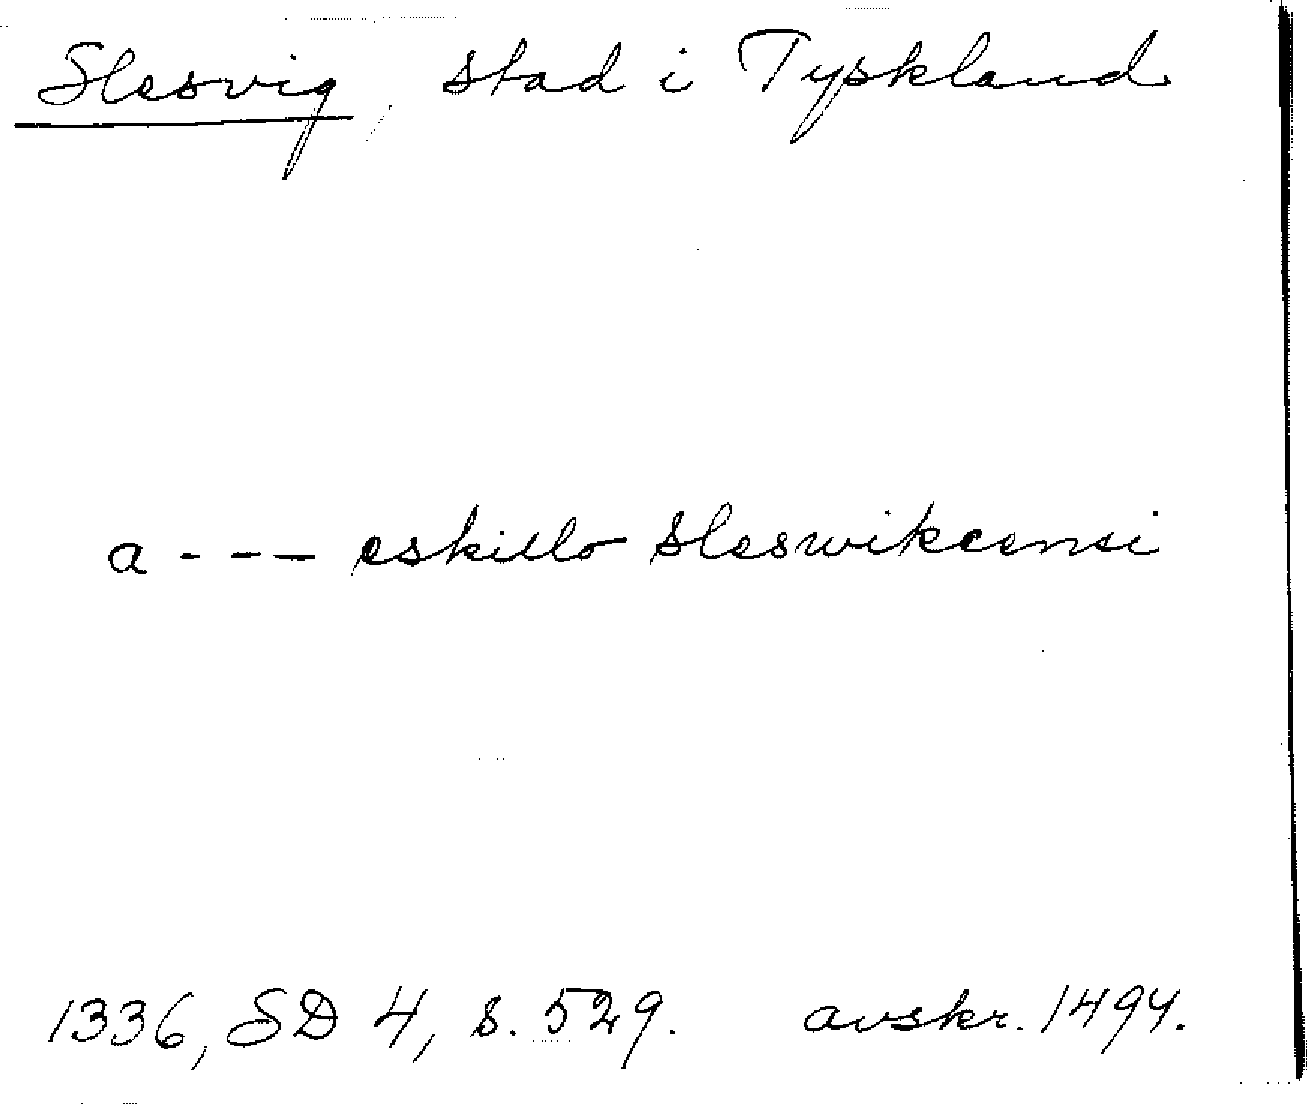 Slesvig, stad i Tyskland
a - - - eskillo sleswikcensi
1336, SD 4, s. 529. avskr. 1494.